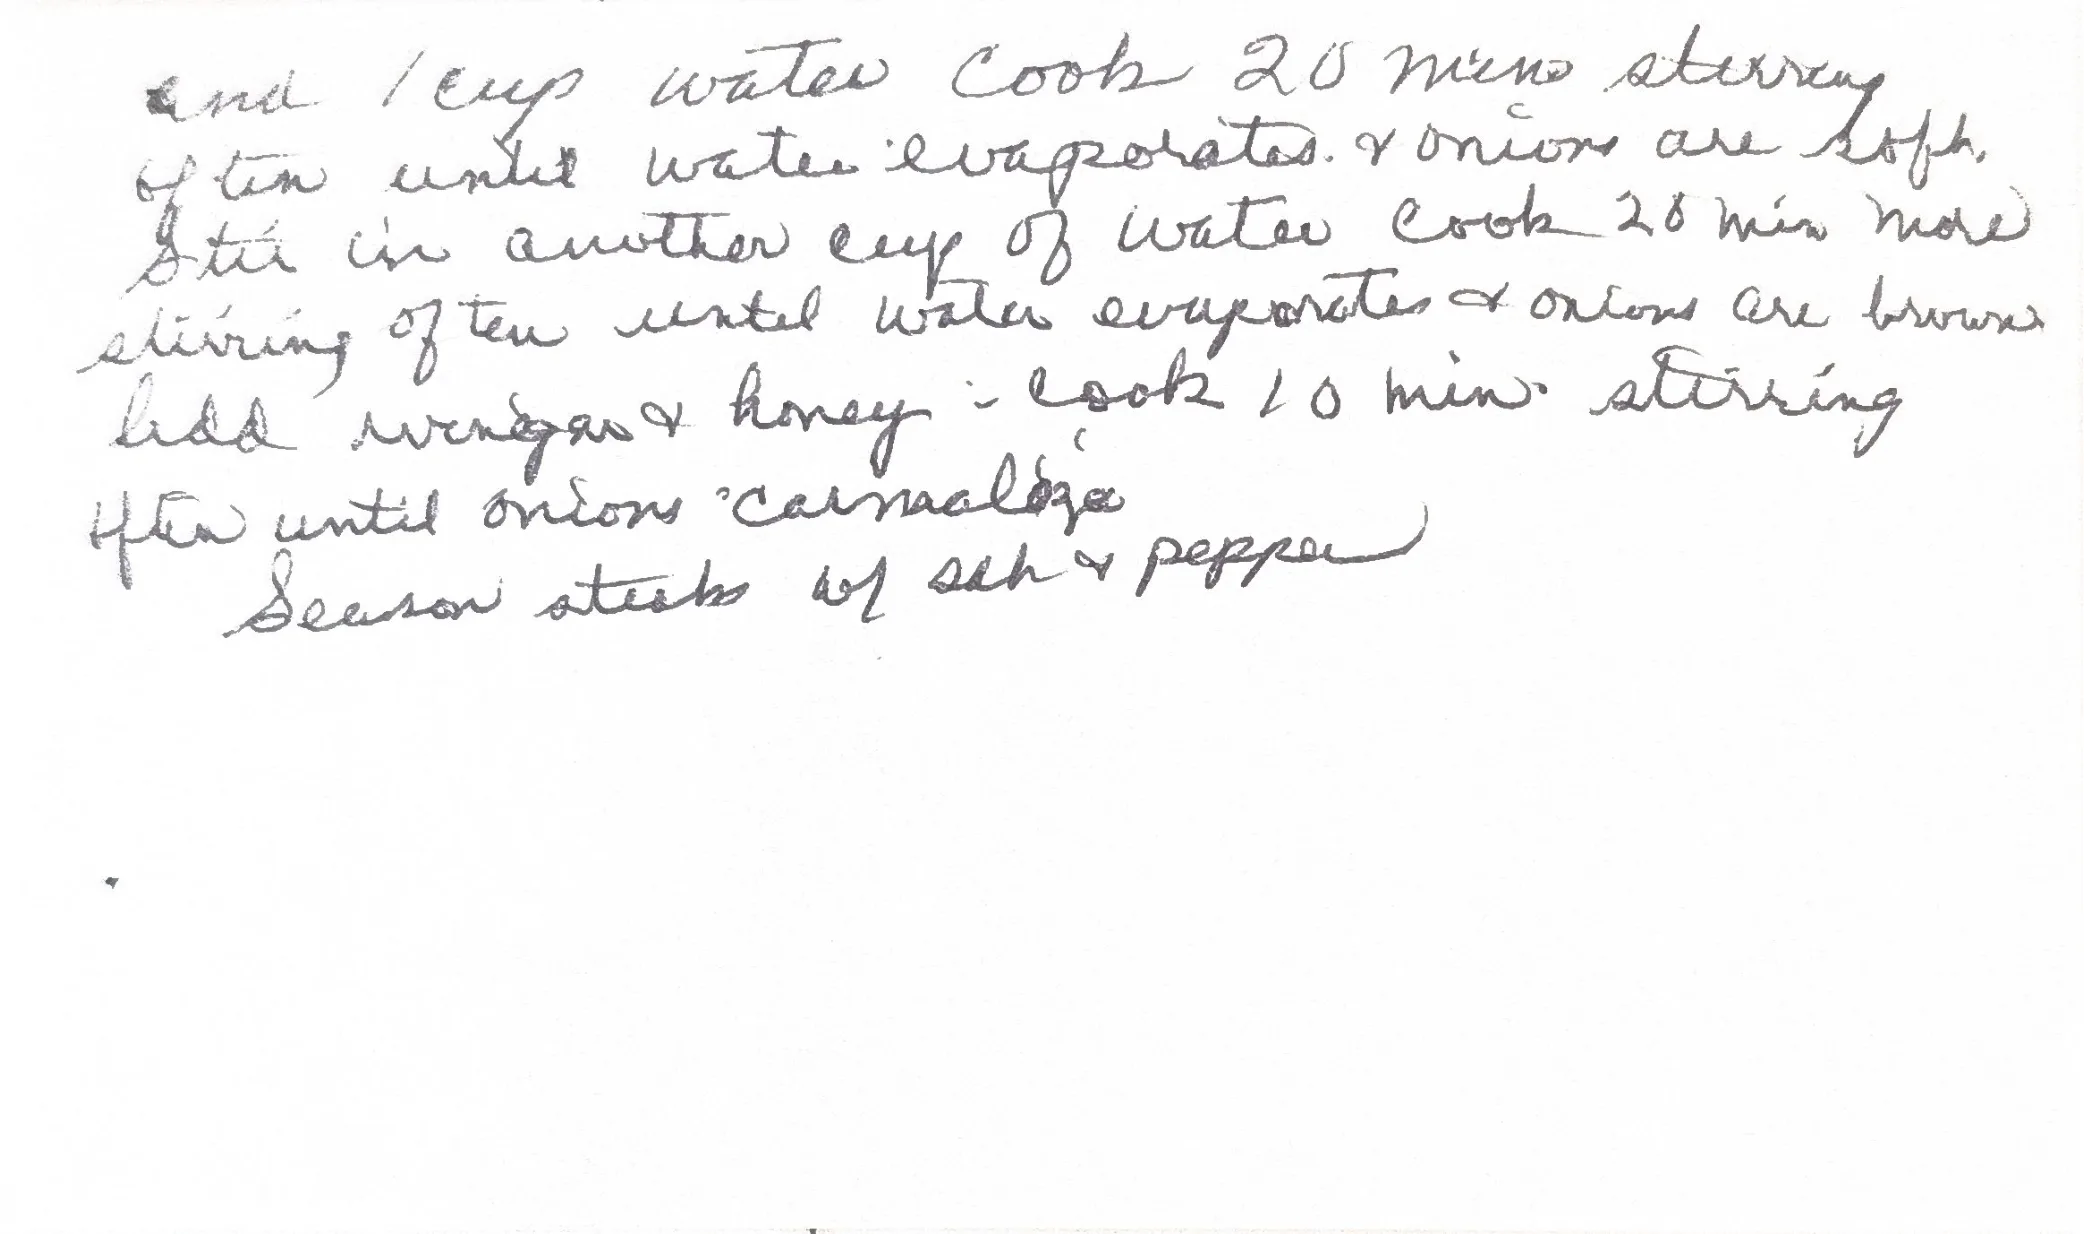 and 1 cup water cook 20 mins stirring
often until water evaporates. & onions are soft.
Stir in another cup of water cook 20 min more
stirring often until water evaporates & onions are brown
Add vinegar & honey - cook 10 min. stirring
often until onions carmalize
Season steaks w/ salt & pepper